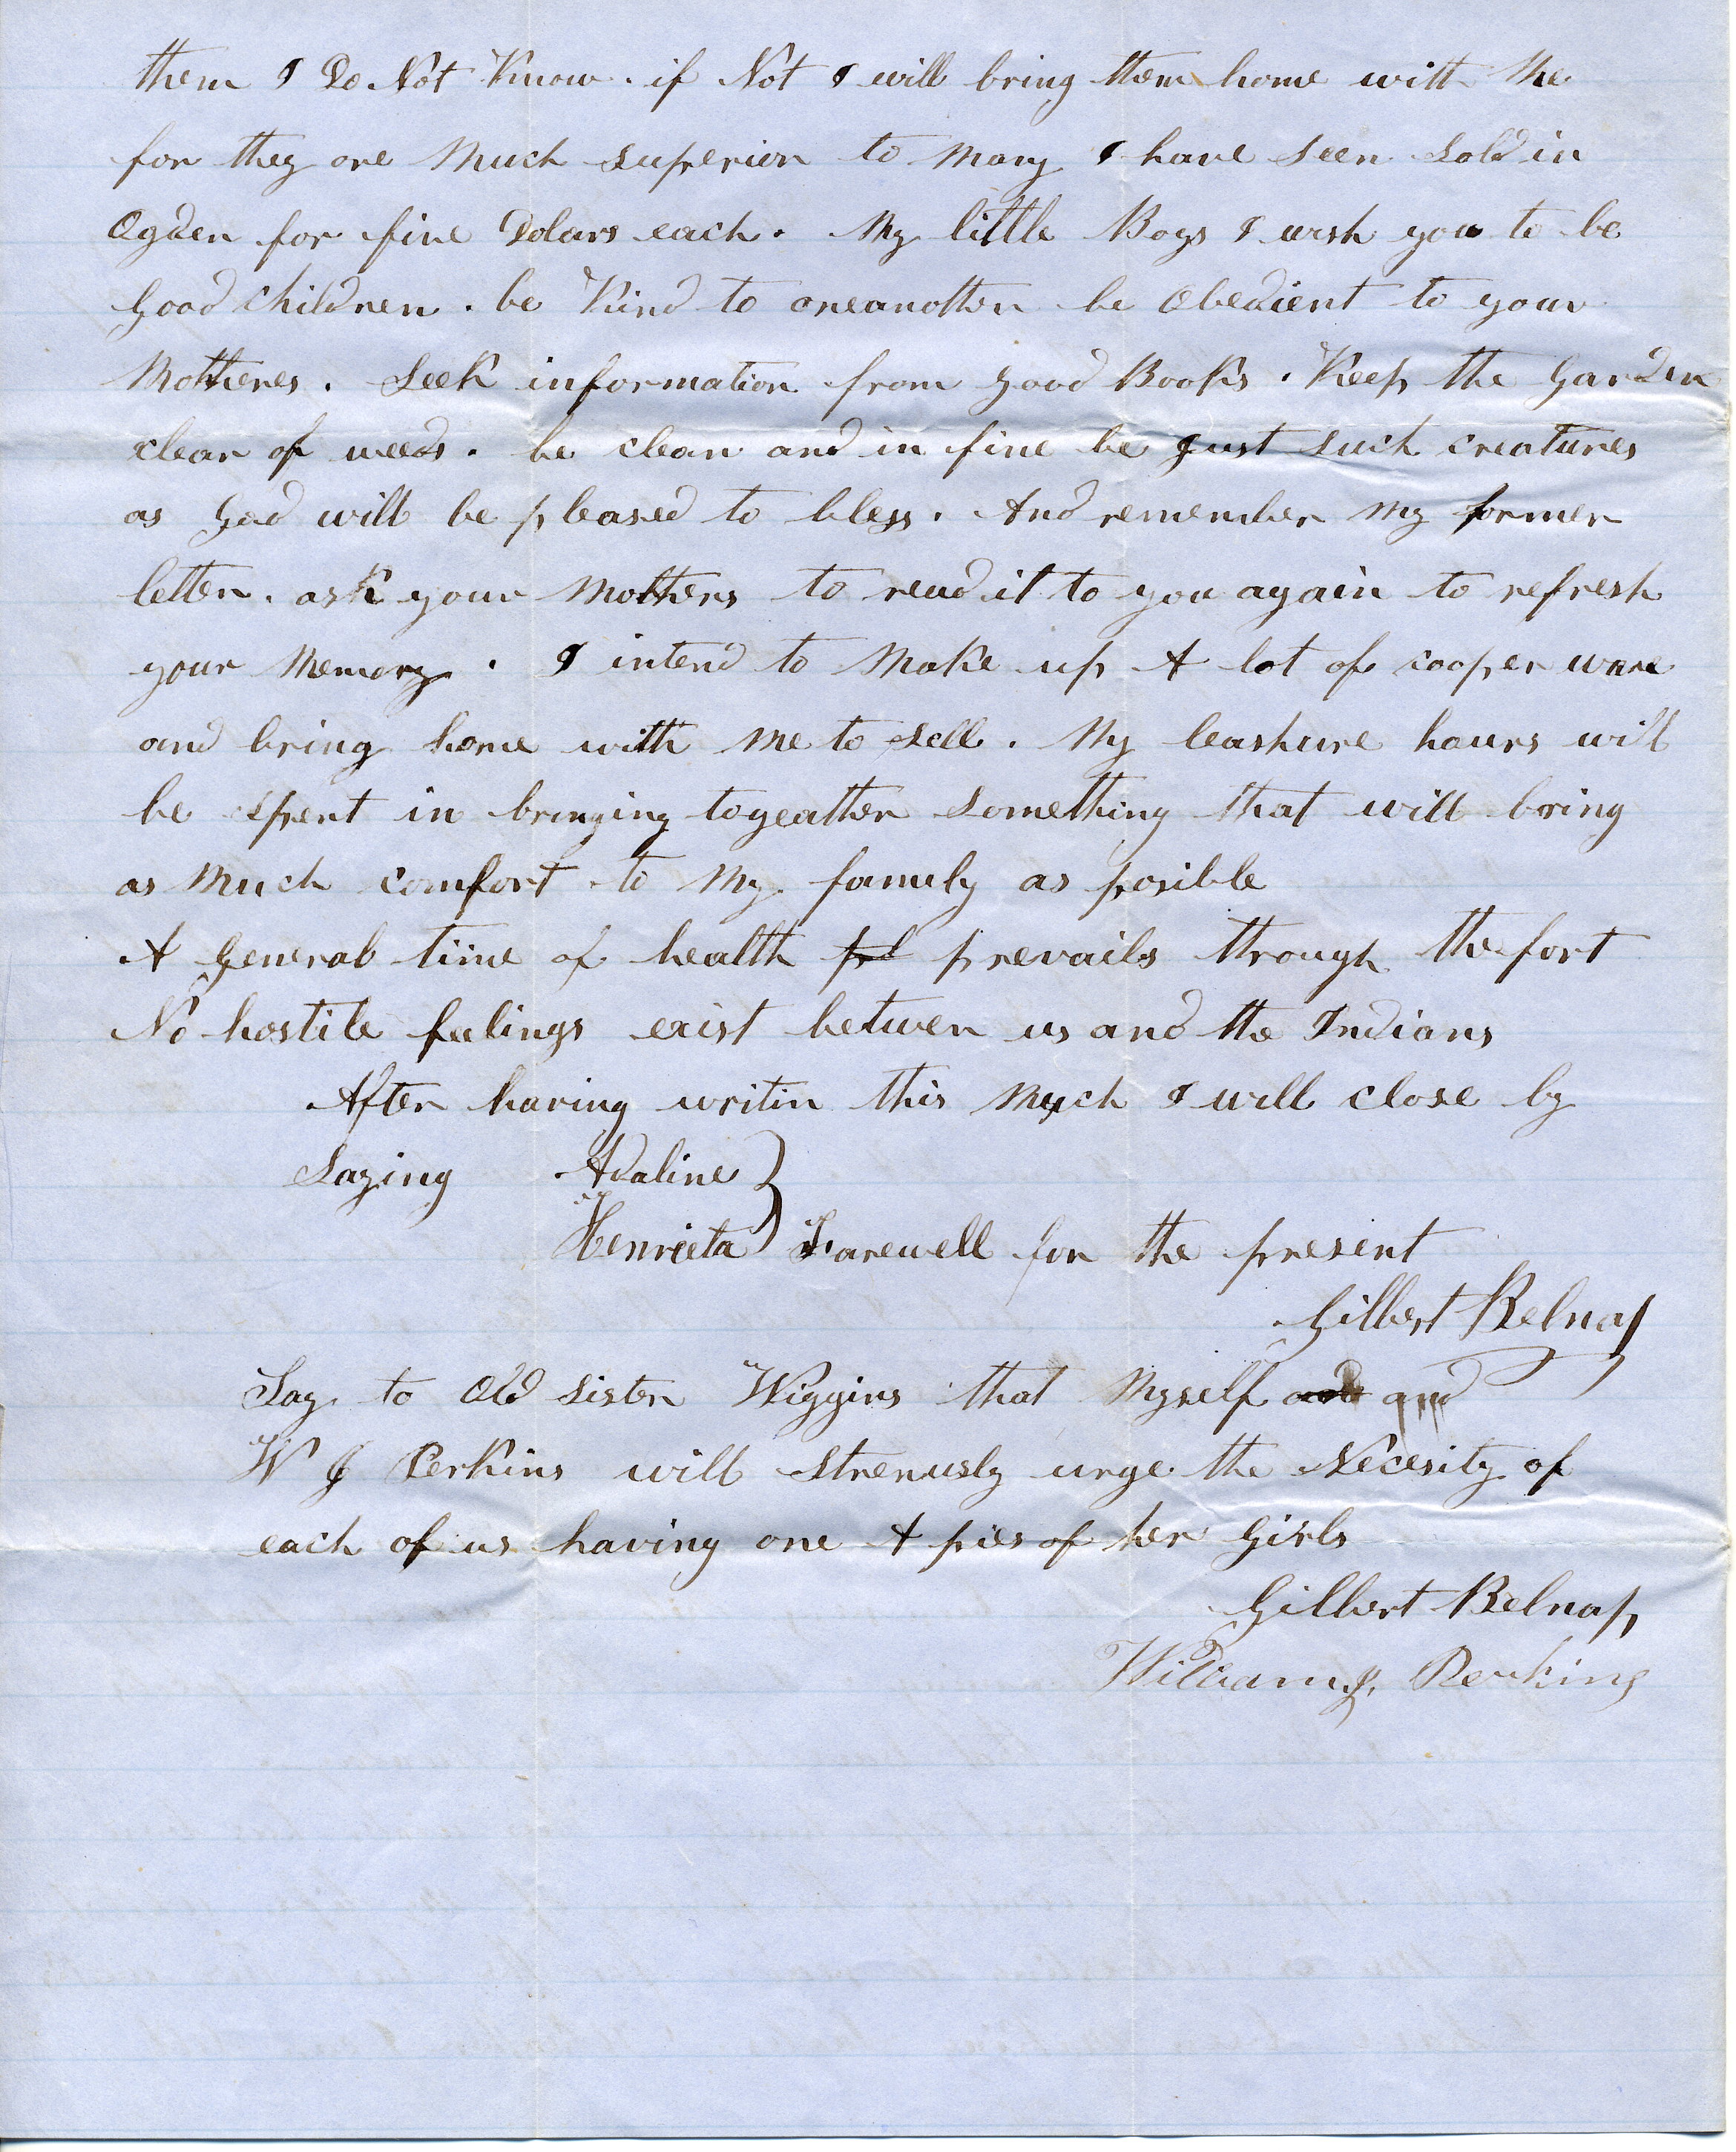 them I Do Not Know. if Not I will bring them home with Me
for they are Much superior to Many I have seen sold in
Ogden for five Dolars each. My little Boys I wish you to be
Good children. be Kind to oneanother be Obedient to your
Motheres. Seek information from good Books. Keep the Garden
clear of weeds. be clean and in fine be Just such creatures
as God will be pleased to bless. And remember My former
letter. ask your Mothers to read it to you again to refresh
your Memory. I intend to Make up A lot of cooper ware
and bring home with Me to sell. My leashure hours will
be spent in bringing togeather something that will bring
as Much comfort to My family as posible
A General time of health prevails through the fort
No hostile feelings exist between us and the Indians
After having writin this Much I will close by
Saying Adaline }
Henrieta } Farewell for the present
Gilbert Belnap
Say to Old Sister Wiggins that Myself and
W J Perkins will Strenusly urge the Necesity of
each of us having one A pies of her Girls
Gilbert Belnap
William J. Perkins